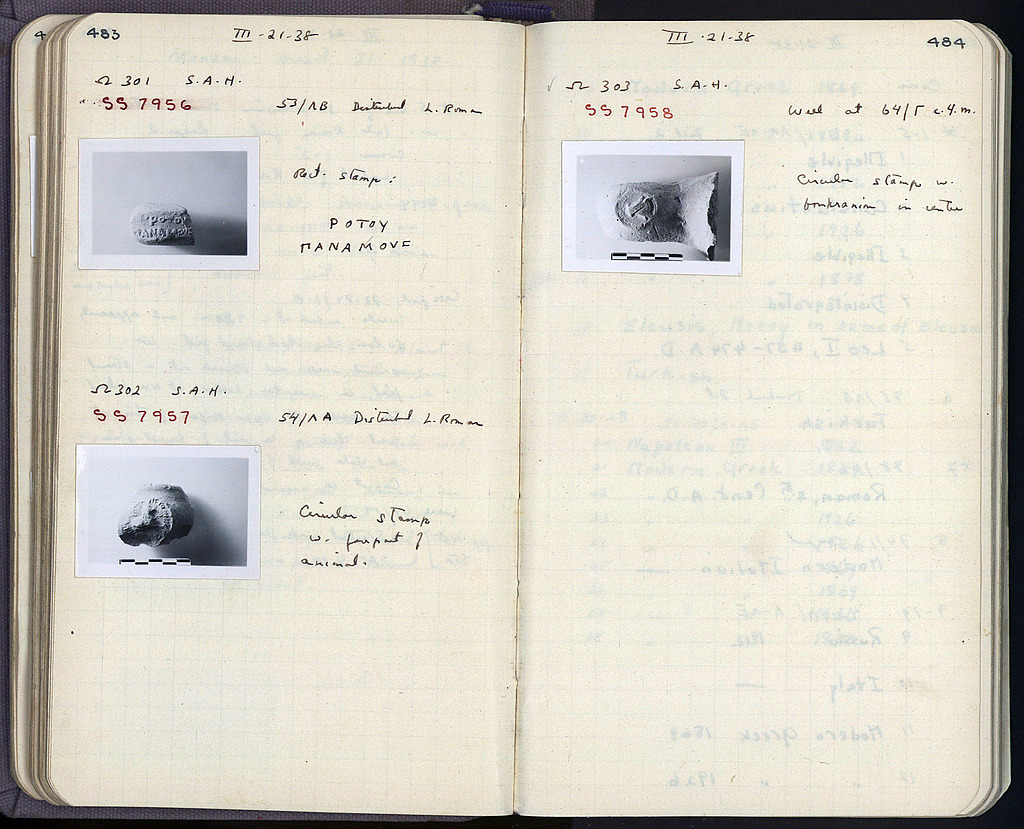 483
III-21-38
Ω 301 S.A.H.
SS 7956
53/ΛB Disturbed L. Roman
Rect. stamp:
ΡΟΤΟΥ
ΠΑΝΑΜΟΥΕ
Ω 302 S.A.H.
SS 7957
54/ΛA Disturbed L. Roman
Circular stamp
w. forepart of
animal.
III-21-38
484
Ω 303 S.A.H.
SS 7958
Well at 64/Γ c.4.m.
Circular stamp w.
boukranion in centre